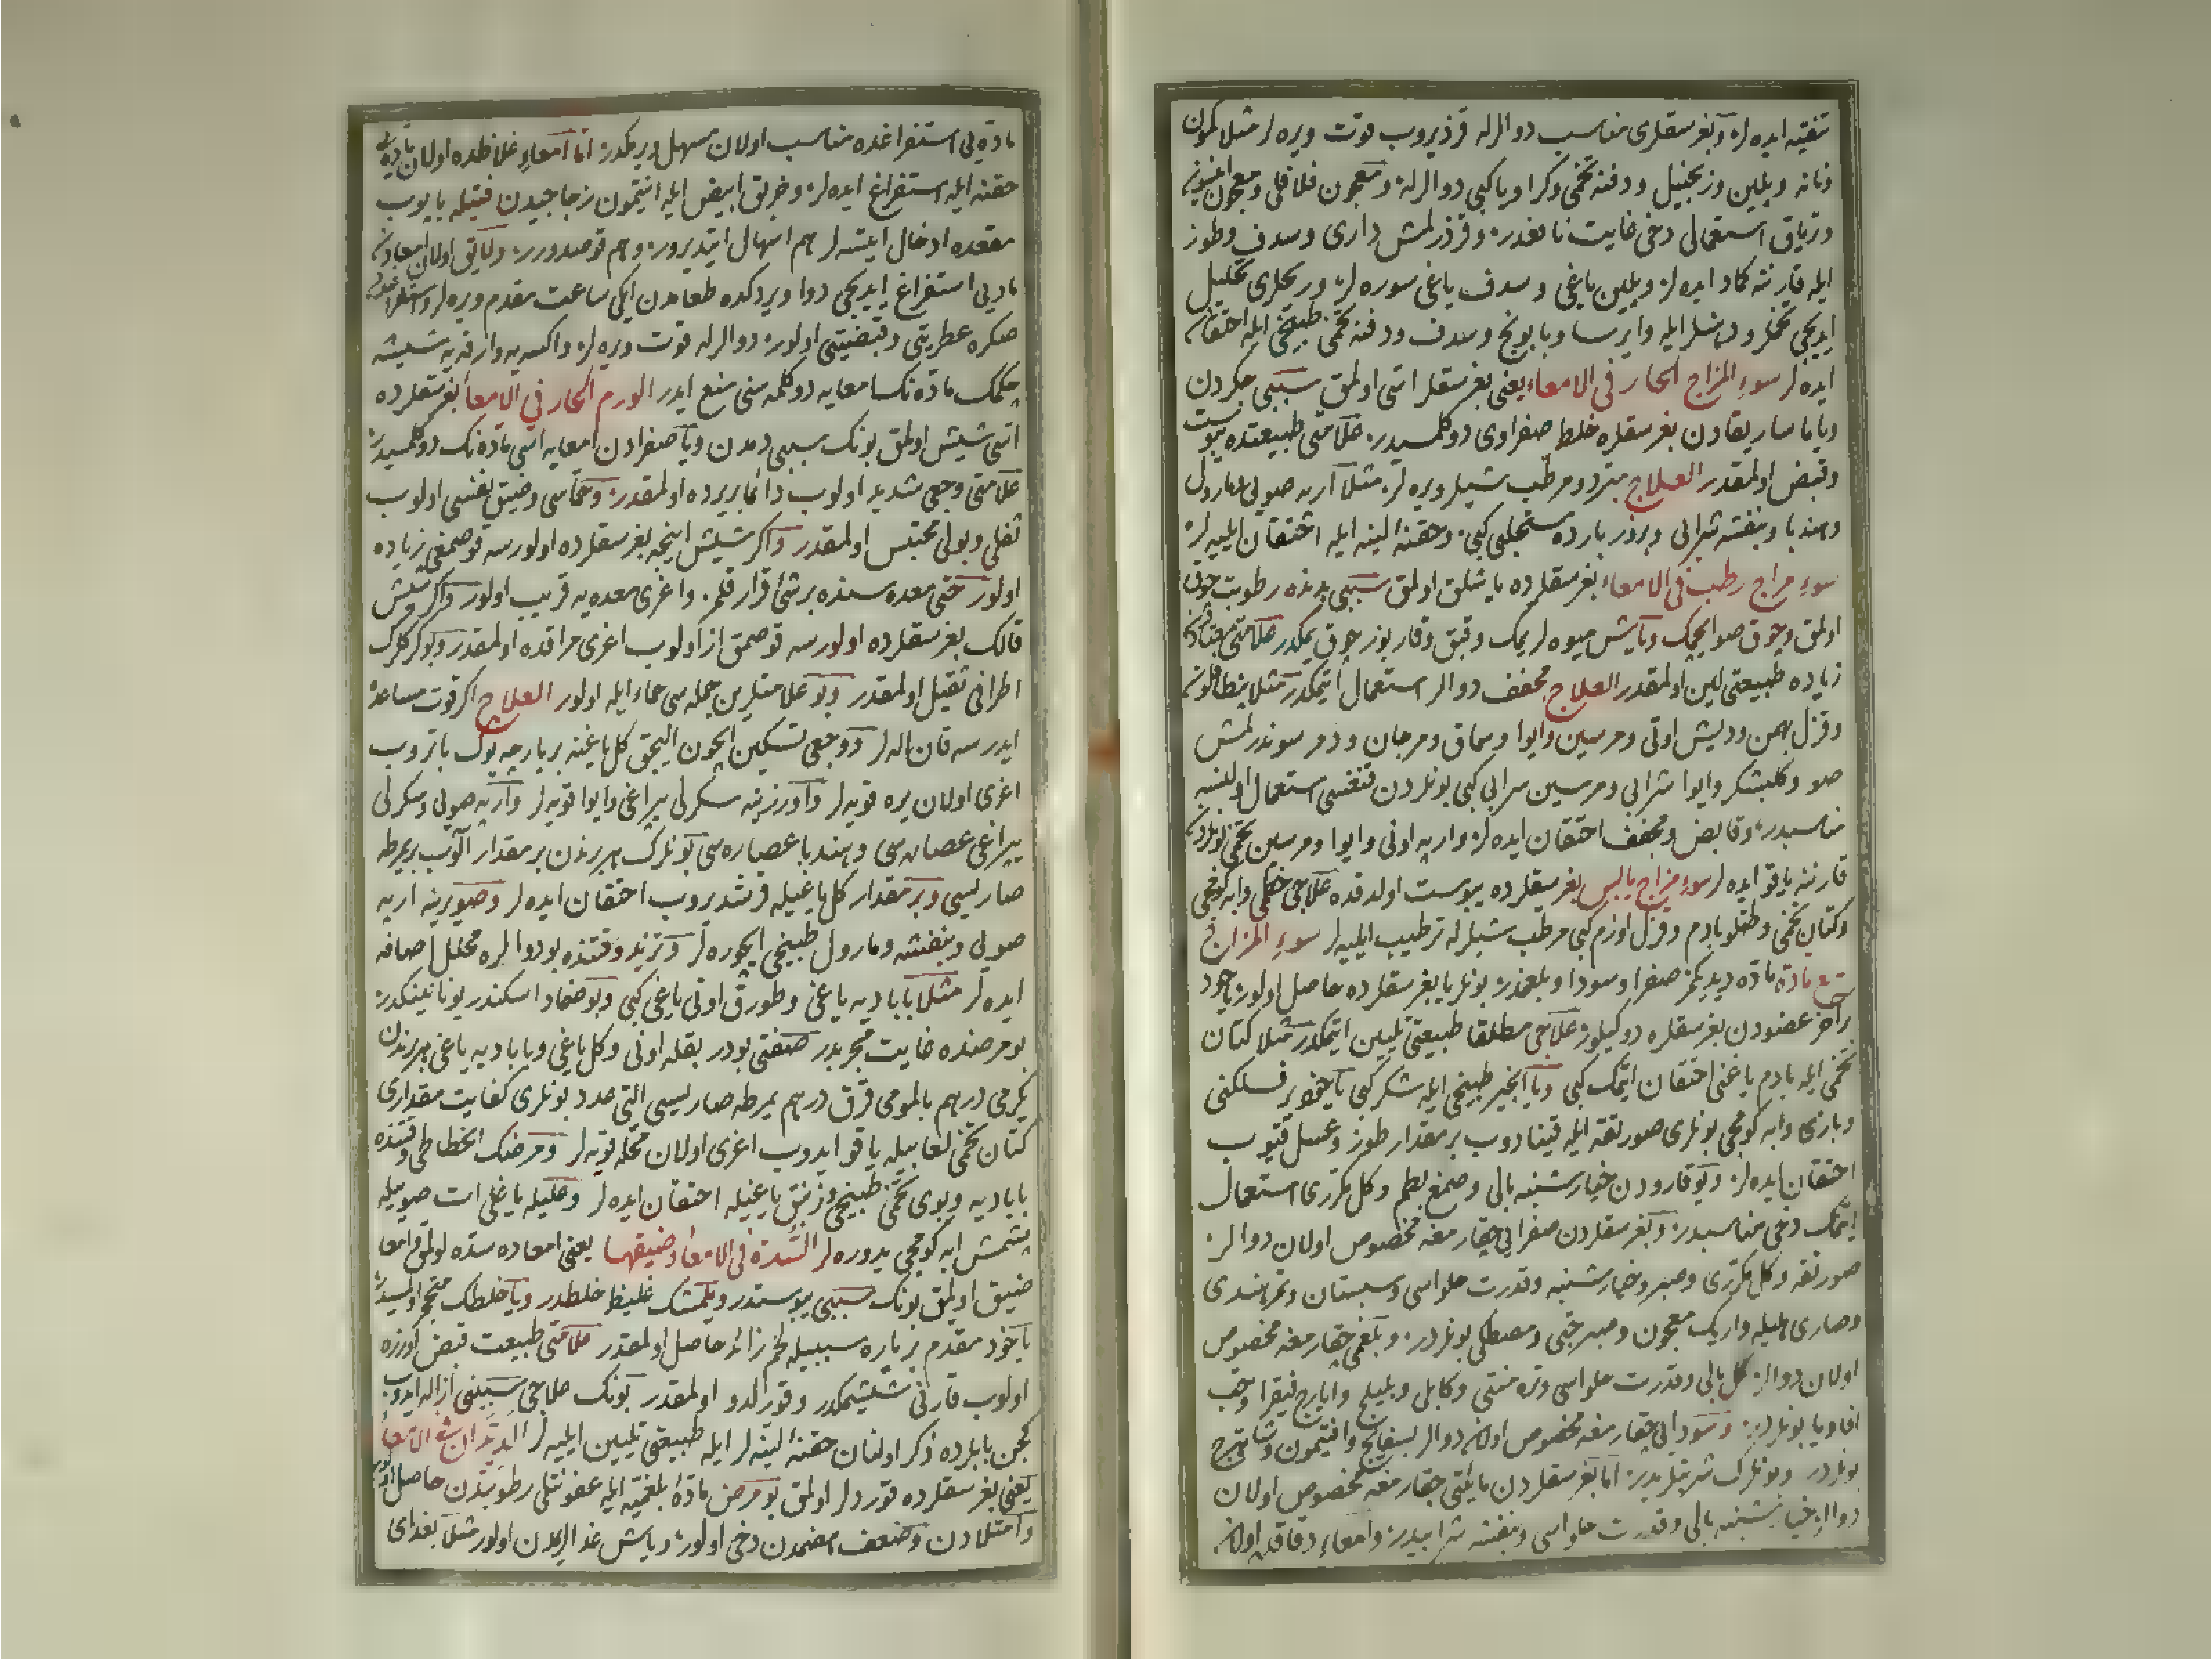 تنقیه ایده لر وبغرسقلری مناسب دوالرله قزدیروب قوت ویره لر مثلا کمون
ونانه وبلین وزنجبیل ودفنه تخمی وکراویا کبی دوالرله ومعجون فلافلی ومعجون
وتریاق استعمالی دخی غایت نافعدر وقزدرلمش داری وسدف وطوز
ایله قارننه کماد ایده لر وبلین یاغی وسدف یاغی سوره لر وریحلری تحلیل
ایدیجی تخملر ایله وایرسا وبابونج وسدف ودفنه تخمی طبیخی ایله احتقان
ایده لر سوء المزاج الحار فی الامعاء یعنی بغرسقلر اتی اولمق سببی جکردن
ویا ماساریقادن بغرسقلره خلط صفراوی دوکلمسیدر علامتی طبیعتده یبوست
وقبض اولمقدر العلاج مبرد ومرطب شیلر ویره لر مثلا آرپه صویی مارول
وهندبا وبنفشه شرابی وبزور بارده سنجلبی کبی وحقنۀ لینه ایله احتقان ایلیه لر
سوء مزاج رطب فی الامعاء بغرسقلرده یاشلق اولمق سببی بدنده رطوبت چوق
اولمق وچوق صو ایچمک ویاش میوه لر یمک وقبق وقارپوز چوق یمکدر علامتی
زیاده طبیعتی لین اولمقدر العلاج مجفف دوالر استعمال ایتمکدر مثلا
وقزل بهمن ودیش اوتی ومرسین وایوا وسماق ومرجان ودمر سوندرلمش
صو وکلبشکر وایوا شرابی ومرسین شرابی کبی بونلردن قنغیسی استعمال اولنسه
مناسبدر وقابض ومجفف احتقان ایده لر وارپه اونی وایوا ومرسین تخمی
قارننه یاقو ایده لر سوء مزاج یابس بغرسقلرده یبوست اولدقده علاجی خطمی وابه کومجی
وکتان تخمی وطتلو بادم وقزل اوزم کبی مرطب شیلرله ترطیب ایلیه لر سوء المزاج
مع مادة ماده دیدیکمز صفرا وسودا وبلغمدر بونلر یا بغرسقلرده حاصل اولور یاخود
بر آخر عضودن بغرسقلره دوکیلور علاجی مطلقا طبیعتی تلیین ایتمکدر مثلا کتان
تخمی ایله بادم یاغنی احتقان ایتمک کبی ویا انجیر طبیخی ایله شکر کبی یاخود
وبازی وابه کومجی بونلری صورتقه ایله قینادوب بر مقدار طوز وعسل قتوب
احتقان ایده لر وبوقارودن خیارشنبه بالی وصمغ بطم وکل مکرری استعمال
ایتمک دخی مناسبدر وبغرسقلردن صفرایی چقارمغه مخصوص اولان دوالر
صورتقه وکل مکرری وصبر وخیارشنبه وقدرت حلواسی وسبستان وتمر هندی
وصاری هلیله واریک معجون وصبر حبی ومصطکی بونلردر وبلغمی چقارمغه مخصوص
اولان دوالر کل بالی وقدرت حلواسی وتره منتی وکابلی وبلیلج وایارج فیقرا وحب
افاویا بونلردر وسودایی چقارمغه مخصوص اولان دوالر بسفایج وافتیمون وشاهترج
بونلردر وبونلرک شربتلریدر اما بغرسقلردن مائیتی چقارمغه مخصوص اولان
دوالر خیارشنبه بالی وقدرت حلواسی وبنفشه شرابیدر وامعاء دقاقده اولان
مادەیی استفراغده مناسب اولان مسهل ویرمکدر اما امعاء غلاظده اولان مادەیی
حقنه ایله استفراغ ایده لر وخربق ابیض ایله انتیمون زجاجیدن فتیله یاپوب
مقعده ادخال ایتسه لر هم اسهال ایتدیرور وهم قوصدورر ودقایق اولان امعادن
مادەیی استفراغ ایدیجی دوا ویردکده طعامدن ایکی ساعت مقدم ویره لر واستفراغدن
صکره عطریتی وقبضیتی اولور دوالرله قوت ویره لر واکسه یه وارقه یه شیشه
چکمک مادەنک امعایه دوکلمه سنی منع ایدر الورم الحار فی الامعا بغرسقلرده
اتی شیش اولمق بونک سببی دمدن ویا صفرادن امعایه اتی مادەنک دوکلمسیدر
علامتی وجعی شدید اولوب دائما بر یرده اولمقدر وحماسی وضیق نفسی اولوب
ثفلی وبولی محتبس اولمقدر واکر شیش اینجه بغرسقلرده اولورسه قوصمغی زیاده
اولور حتی معده سنده برشی قرار قلمز واغری معده یه قریب اولور واکر شیش
قالک بغرسقلرده اولورسه قوصمق از اولوب اغری مراقده اولمقدر وبوکرکلرک
اطرافی ثقیل اولمقدر وبو علامتلرین جمله سی حماء ایله اولور العلاج اکر قوت مساعده
ایدرسه قان اله لر ووجعی تسکین ایچون الیجق کل یاغنه بر پارچه یوک باتروب
اغری اولان یره قویه لر واوزرینه سکرلی یپراغی وایوا قویه لر وآرپه صویی وسکرلی
یپراغی عصاره سی وهندبا عصاره سی بونلرک هر برندن بر مقدار آلوب یمرطه
صاریسی وبر مقدار کل یاغیله قرشدیروب احتقان ایده لر وصو یرینه ارپه
صویی وبنفشه ومارول طبیخی ایچوره لر وتزید وقتنده بو دوالره محلل اضافه
ایده لر مثلا بابادیه یاغی وطورق اوتی یاغی کبی وبو ضماد اسکندر یونانینکدر
بو مرضده غایت مجربدر صنعتی بودر بقله اونی وکل یاغی وبابادیه یاغی هر برندن
یکرمی درهم بالمومی قرق درهم یمرطه صاریسی التی عدد بونلری کفایت مقداری
کتان تخمی لعابیله یاقو ایدوب اغری اولان محله قویه لر ومرضک انحطاطی وقتنده
بابادیه وبوی تخمی طبیخی وزنبق یاغیله احتقان ایده لر وحلیله یاغلی ات صوییله
پشمش ابه کومجی یدوره لر السدة فی الامعاء وضیقها یعنی امعاده سده اولمق وامعا
ضیق اولمق بونک سببی یبوستدر ویلمشک غلیظ خلطدر ویا خلطک متحجر اولمسیدر
یاخود مقدم بر یاره سببیله لحم زائد حاصل اولمقدر علامتی طبیعت قبض اوزره
اولوب قارنی شیشمکدر وقورلدو اولمقدر بونک علاجی سببنی ازاله ایدوب
کچن بابلرده ذکر اولنان حقنۀ لینه لر ایله طبیعتی تلیین ایلیه لر الدیدان فی الامعا
یعنی بغرسقلرده قوردلر اولمق بو مرض مادۀ بلغمیه ایله عفونتلی رطوبتدن حاصل اولور
وامتلادن وضعف هضمدن دخی اولور ویاش غدالردن اولور مثلا بغدای